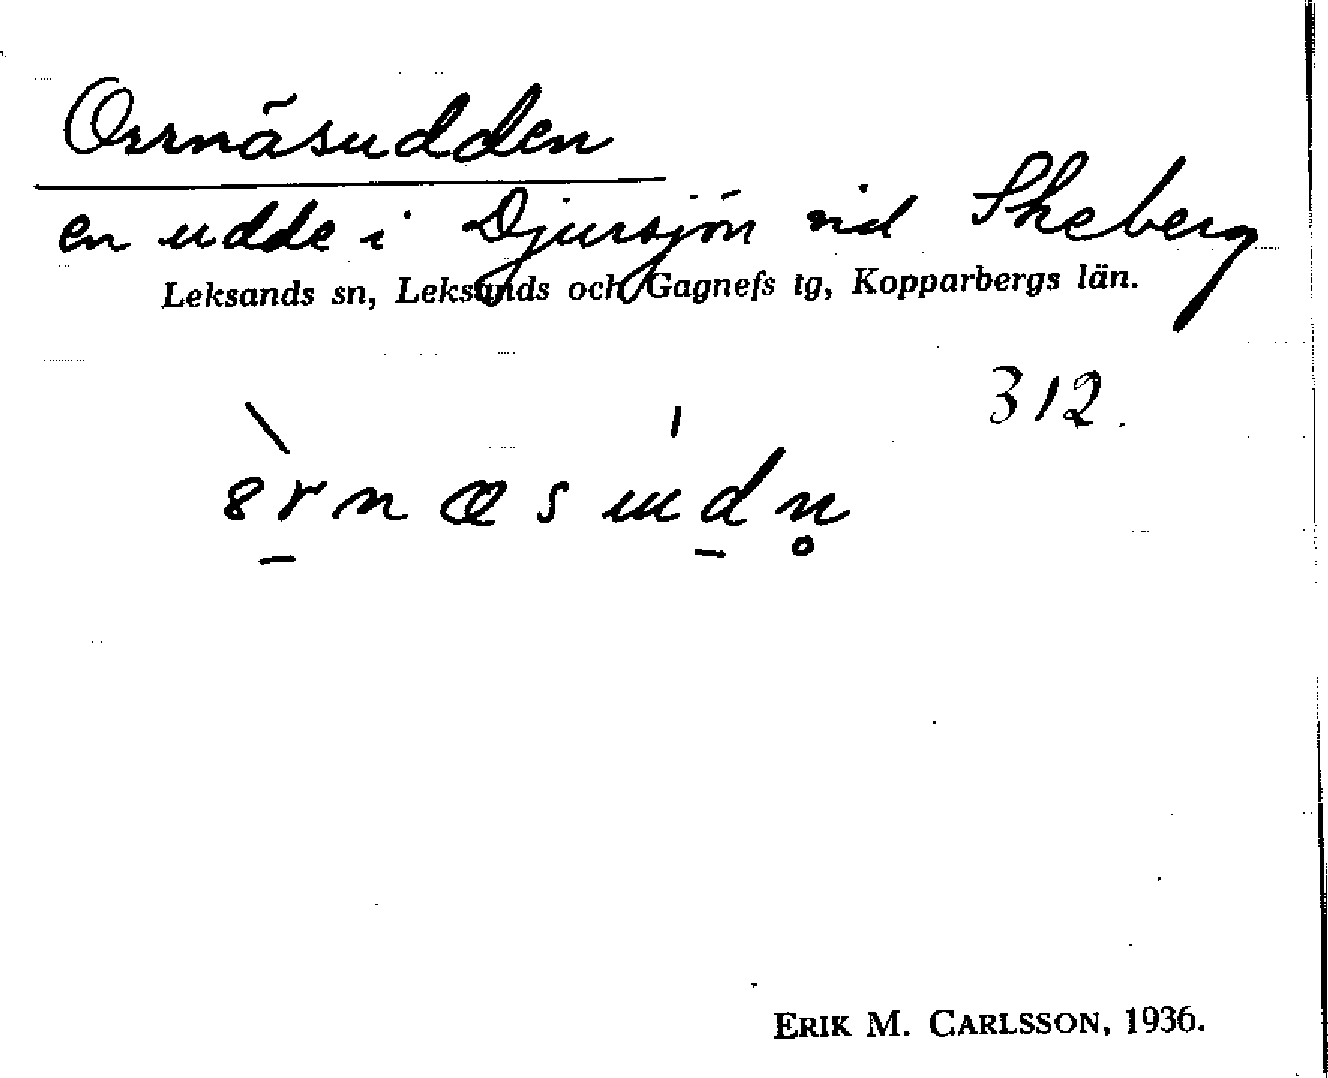 Orrnäsudden
en udde i Djursjön vid Skeberg
Leksands sn, Leksands och Gagnefs tg, Kopparbergs län.
312.
ERIK M. CARLSSON, 1936.